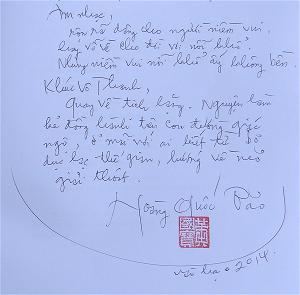 Âm nhạc,
rộn rã đồng cho người niềm vui,
hay vỗ về chia đôi với nỗi khổ.
Nhưng niềm vui nỗi khổ ấy không bền.
Khúc Vô Thanh,
Quay về tịch lặng. Nguyện làm
kẻ đồng hành trên con đường giác
ngộ, ở mãi với ai biết từ bỏ
dục lạc thế gian, hướng về nẻo
giải thoát.
Hoàng Quốc Bảo
hạ 2014.